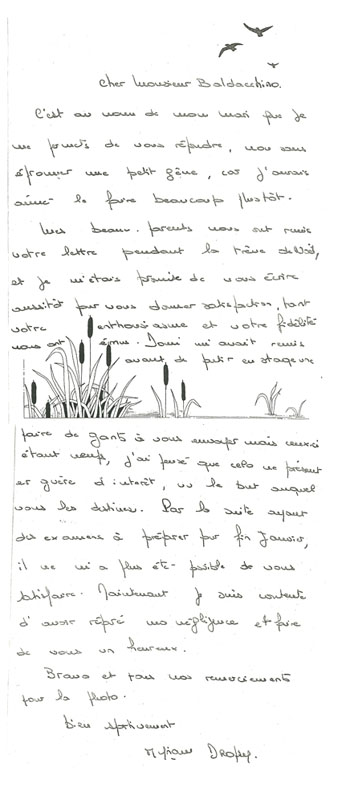 Cher Monsieur Baldacchino.
C'est au nom de mon mari que je
me permets de vous répondre, non sans
éprouver une petit gêne, car j'aurais
aimé le faire beaucoup plustôt.
Mes beaux-parents nous ont remis
votre lettre pendant la trêve de Noël,
et je m'étais promise de vous écrire
aussitôt pour vous donner satisfaction, tant
votre enthousiasme et votre fidélité
nous ont émus. Domi m'avait remis
avant de partir en stage une
paire de gants à vous envoyer mais ceux-ci
étant neufs, j'ai pensé que cela ne présent
er guère d'interêt, vu le but auquel
vous les destinez. Par la suite ayant
des examens à préparer pour fin Janvier,
il ne m'a plus été possible de vous
satisfaire. Maintenant je suis contente
d'avoir réparé ma négligence et faire
de vous un heureux.
Bravo et tous nos remerciements
pour la photo.
bien sportivement
Myriam